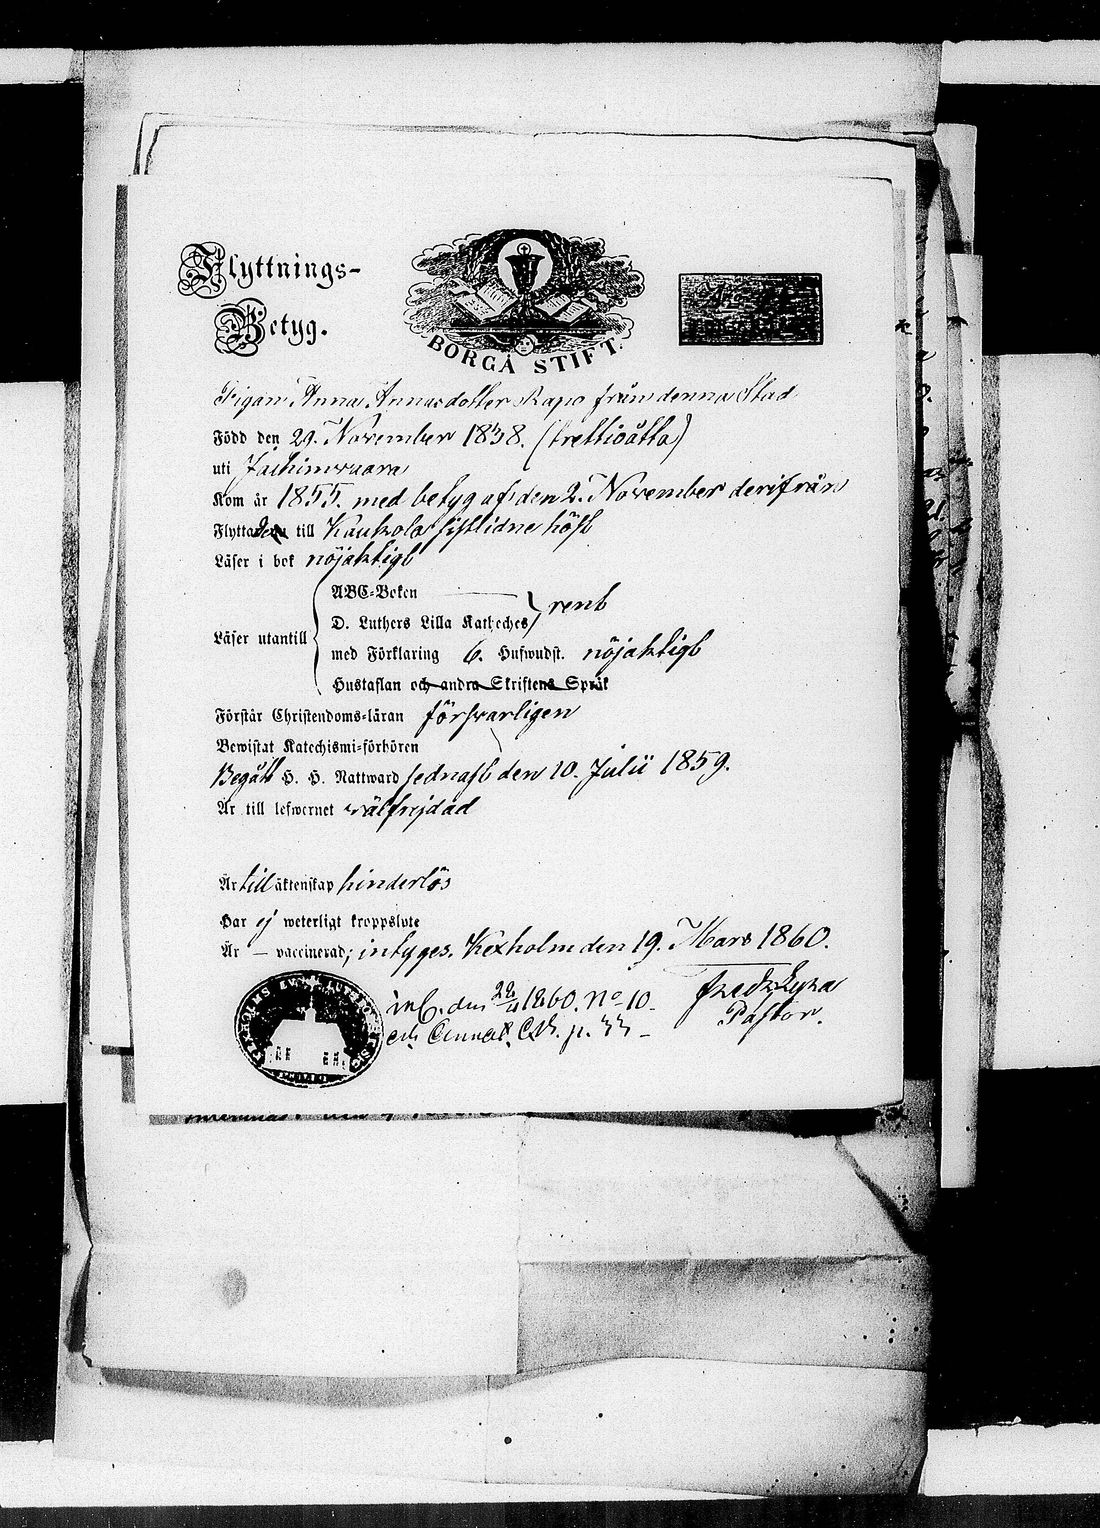 Flyttnings-
Betyg.
BORGÅ STIFT.
Pigan Anna Annasdotter Rapo från denna Stad
Född den 29. November 1838. (trettioåtta)
uti Jaakimvaara
Kom år 1855. med betyg af den 2. November derifrån
Flyttade till Kaukola sistlidne höst
Läser i bok nöjaktigt
ABC-Boken
Läser utantill
D. Luthers Lilla Katheches rent
med Förklaring 6. Hufwudst. nöjaktigt
Hustaflan och andra Skriftens Språk
Förstår Christendoms-läran försvarligen
Bewistat Katechismi-förhören
Begått H. H. Nattward sednast den 10. Julii 1859.
Är till lefwernet välfrejdad
Är till äktenskap hinderlös
Har ej weterligt kroppslyte
Är — vaccinerad; intygas. Kexholm den 19. Mars 1860.
Pastor.
1860. No 10